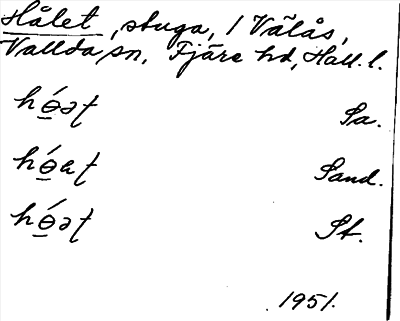 Hålet, stuga, 1 Välås,
Vallda sn, Fjäre hd, Hall. l.
hó̲əʈ Sa.
hó̲aʈ Sand.
hó̲əʈ St.
1951.